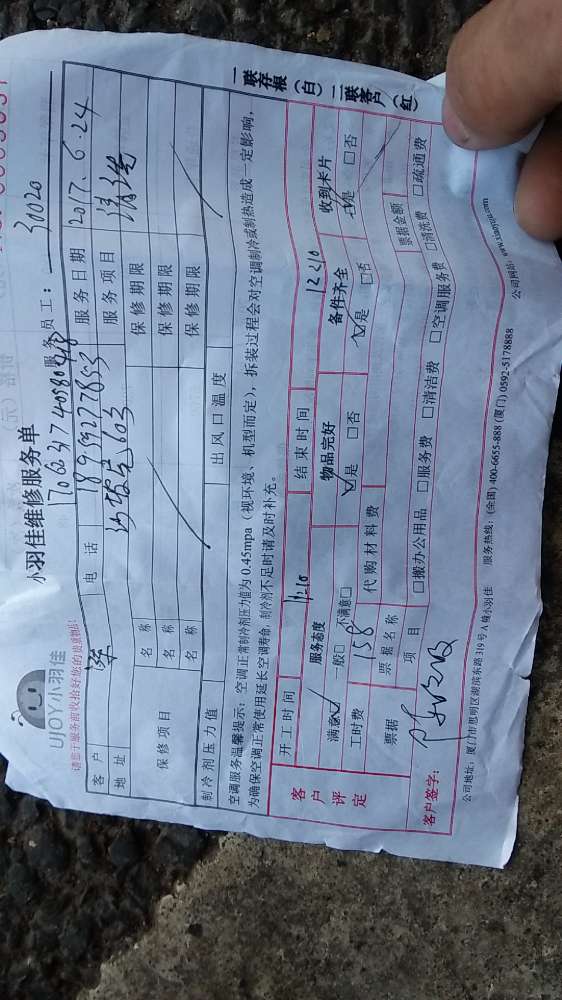 UJOY小羽佳
小羽佳维修服务单
服务员工：30020
请您于服务前收拾好您的贵重物品！
客户 陈 电话 服务日期 2017.6.24
地址 603 服务项目 清洗
保修项目 名称 保修期限
名称 保修期限
名称 保修期限
制冷剂压力值 出风口温度
空调服务温馨提示：空调正常制冷剂压力值为0.45mpa（视环境、机型而定），拆装过程会对空调制冷或制热造成一定影响，
为确保空调正常使用延长空调寿命，制冷剂不足时请及时补充。
开工时间 结束时间 12:10
客户评定 服务态度 物品完好 备件齐全 收到卡片
满意☑ 一般□ 不满意□ ☑是 □否 ☑是 □否 ☑是 □否
工时费 158 代购材料费
票据 票据名称 票据金额
项目 □搬办公用品 □服务费 □清洁费 □空调服务费 □清洗费 □疏通费
客户签字：
公司地址：厦门市思明区湖滨东路319号A幢小羽佳 服务热线：(全国) 400-6655-888 (厦门) 0592-5178888 公司网站：www.xiaoyujia.com
一联存根（白）二联客户（红）